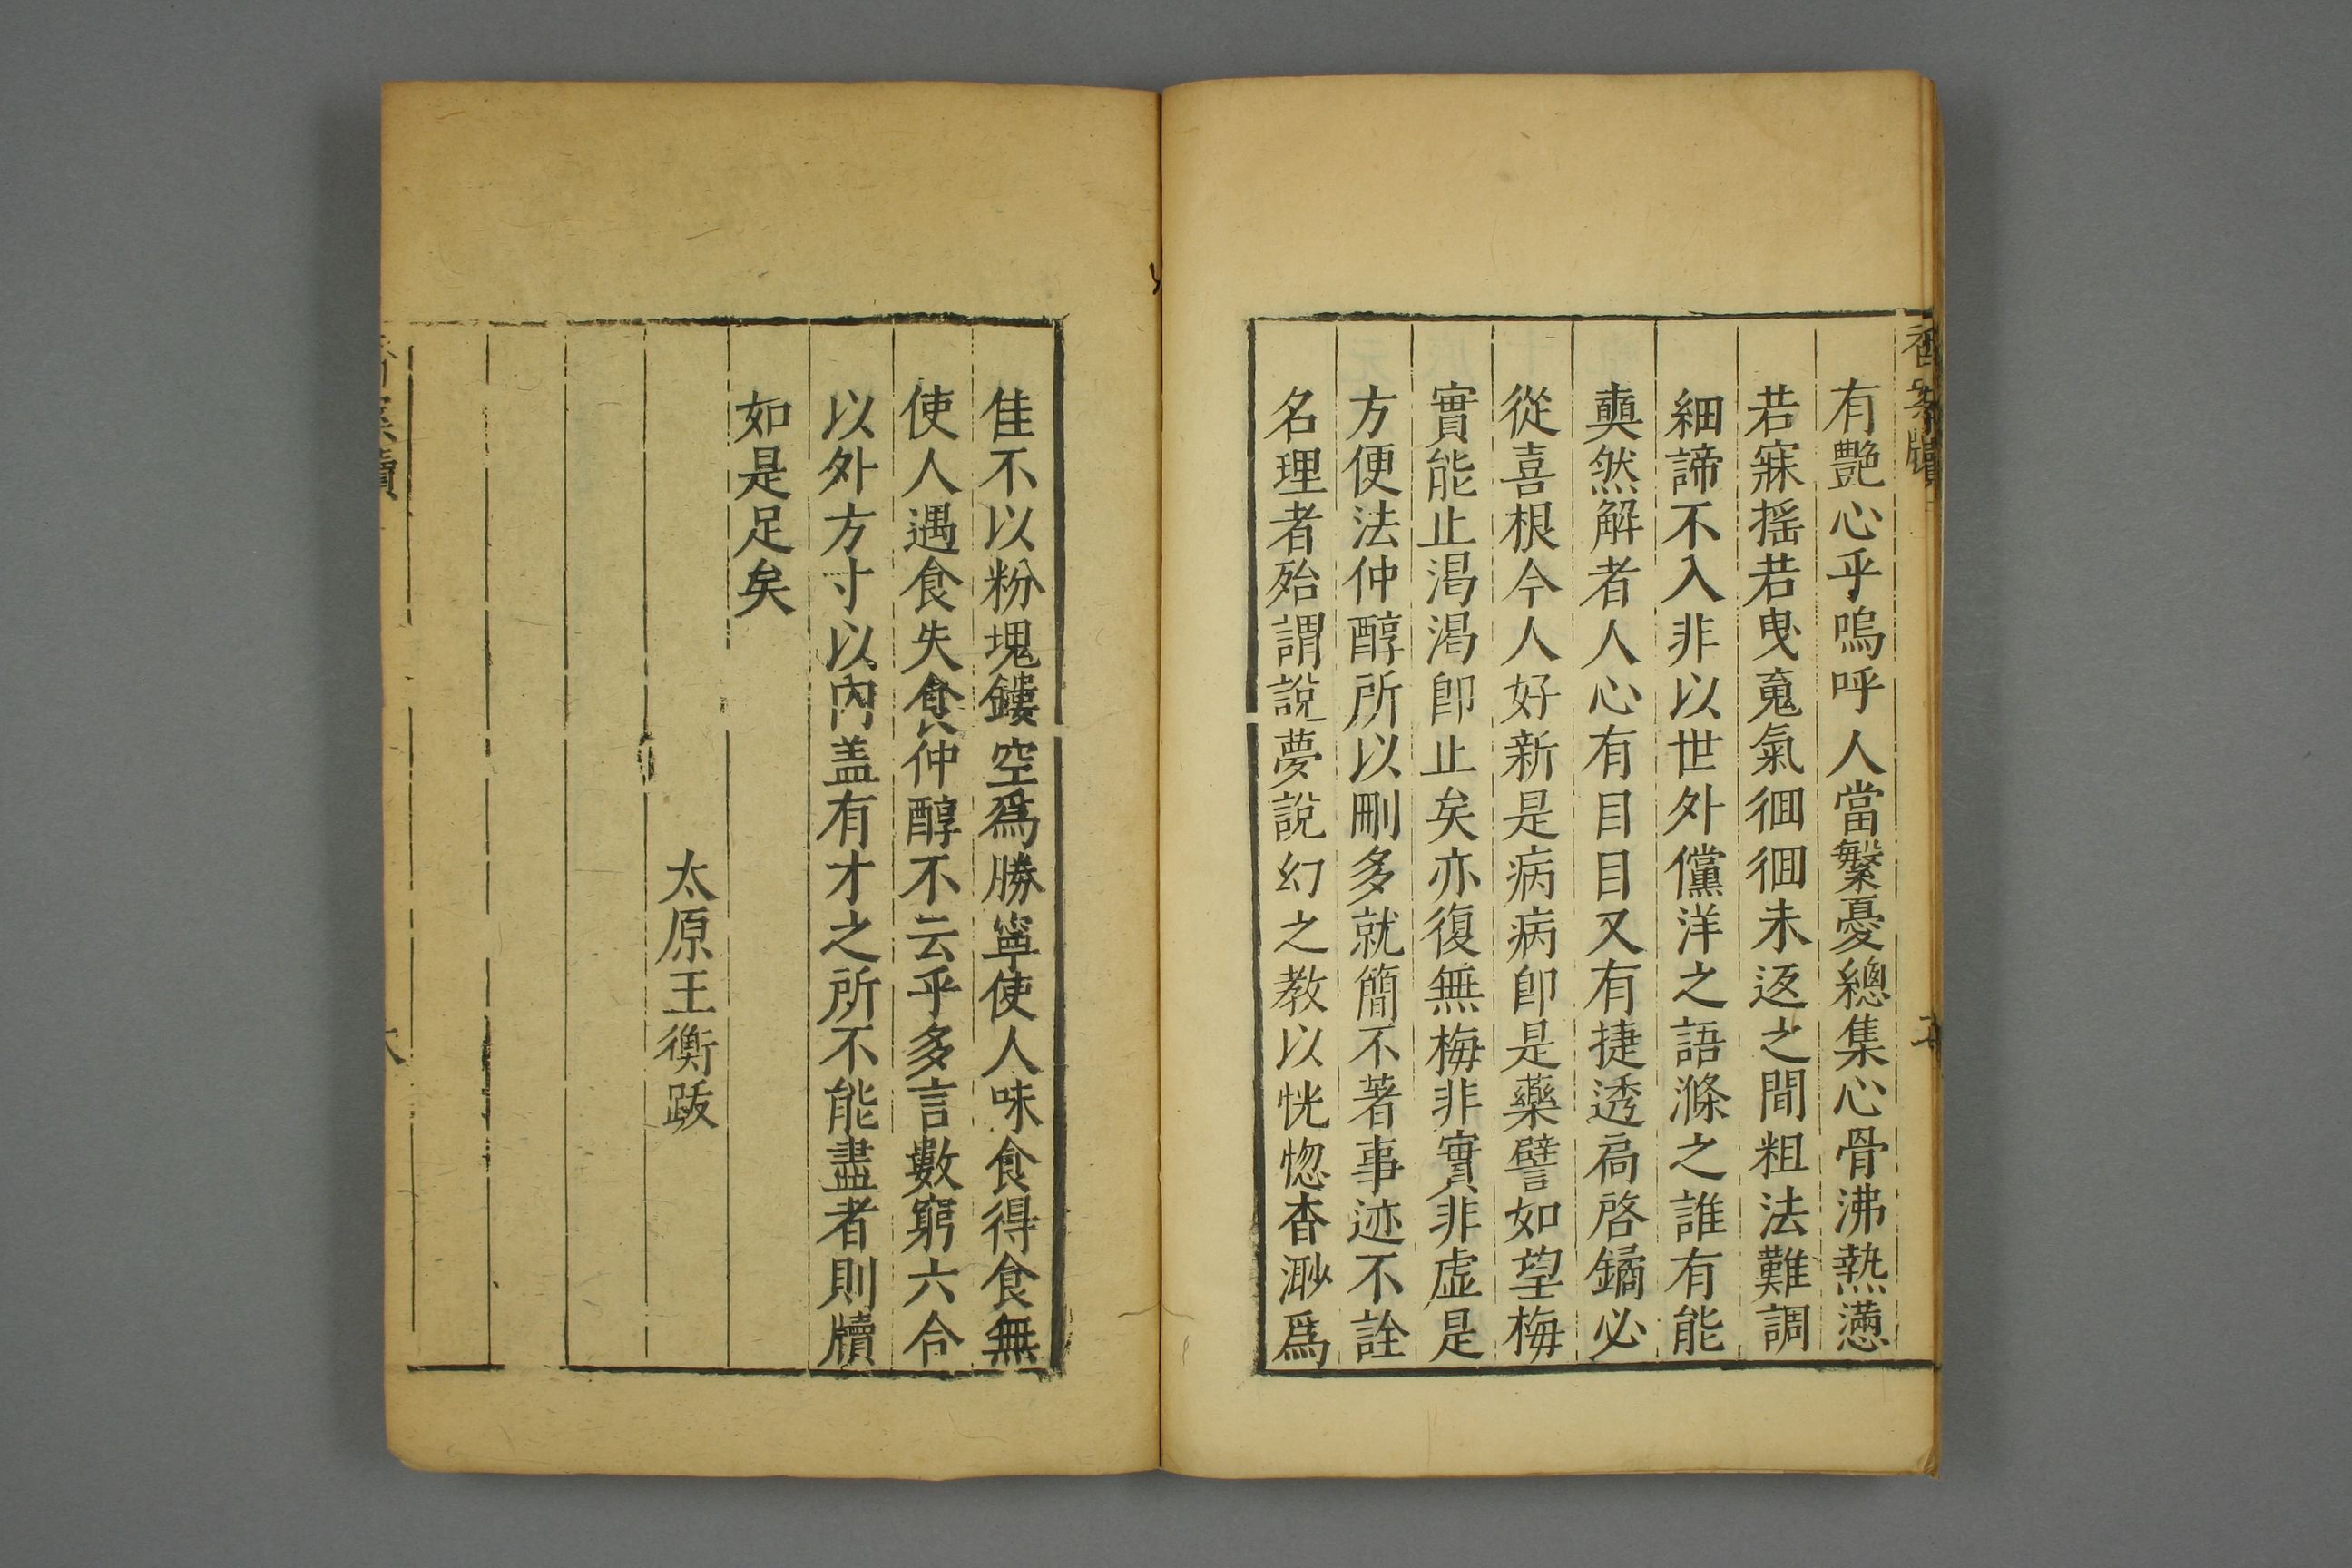 有艷心乎嗚呼人當繫憂總集心骨沸熱懣
若寐搖若曳䰟氣徊徊未返之間粗法難調
細諦不入非以世外儻洋之語滌之誰有能
奭然解者人心有目目又有捷透扃啓鐍必
從喜根今人好新是病病卽是藥譬如望梅
實能止渴渴卽止矣亦復無梅非實非虛是
方便法仲醇所以刪多就簡不著事迹不詮
名理者殆謂說夢說幻之教以恍惚杳渺爲
佳不以粉塊鏤空爲勝寧使人味食得食無
使人遇食失食仲醇不云乎多言數窮六合
以外方寸以內盖有才之所不能盡者則牘
如是足矣
太原王衡跋